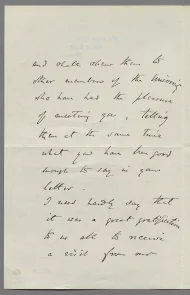 and shall show them to
other members of the University
who have had the pleasure
of meeting you, telling
them at the same time
what you have been good
enough to say in your
letter.
I need hardly say that
it was a great gratification
to us all to receive
a visit from